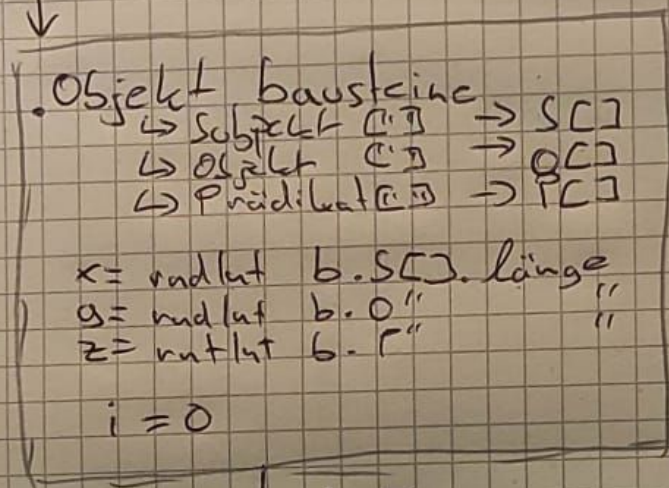 .Objekt bausteine
↳ Subjekt [""] → S[]
↳ Objekt [""] → O[]
↳ Prädikat [""] → P[]
x = rndInt b.S[].länge
y = rndInt b.O " "
z = rntInt b.P " "
i = 0